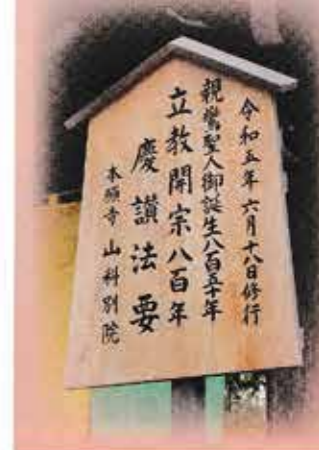 令和五年六月十八日修行
親鸞聖人御誕生八百五十年
立教開宗八百年
慶讃法要
本願寺 山科別院